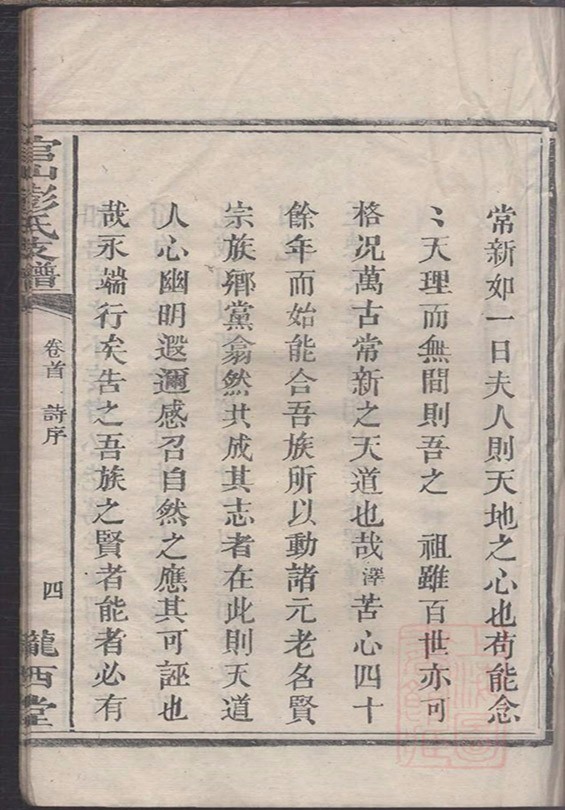 常新如一日夫人則天地之心也苟能念
〻天理而無間則吾之　祖雖百世亦可
格况萬古常新之天道也哉澤苦心四十
餘年而始能合吾族所以動諸元老名賢
宗族鄉黨翕然共成其志者在此則天道
人心幽明遐邇感召自然之應其可誣也
哉永端行矣告之吾族之賢者能者必有
官山彭氏支譜
卷首　詩序
四
隴西堂